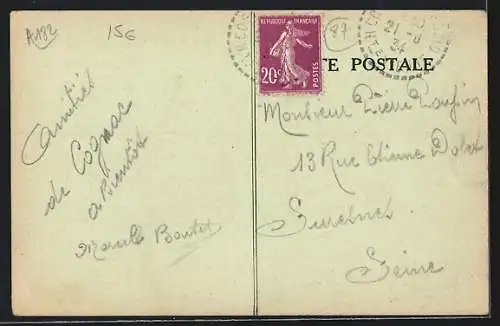 A182
15€
87
RÉPUBLIQUE FRANÇAISE
20c
POSTES
21 -8
34
TE POSTALE
Amitiés
de Cognac
à Bientôt
Marcelle
Monsieur Pierre
13 Rue Etienne Dolet
Suresnes
Seine